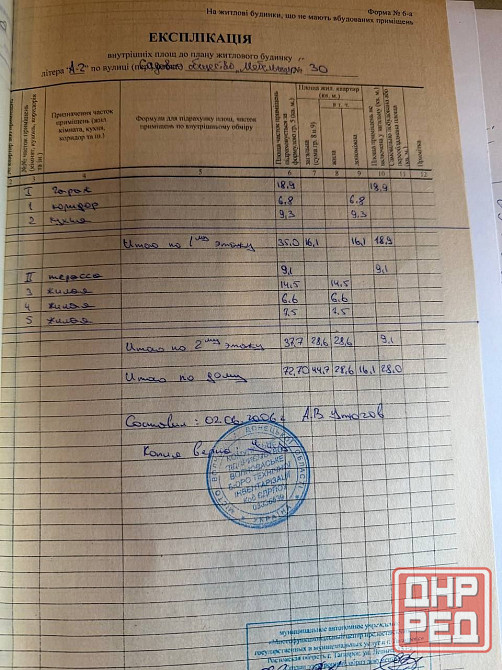 Форма № 6-а
На житлові будинки, що не мають вбудованих приміщень
ЕКСПЛІКАЦІЯ
внутрішніх площ до плану житлового будинку
літера "А-2" по вулиці Садовое общество 30
№№ частин приміщень
Призначення частин приміщень (жил. кімната, кухня, коридор та ін.)
Формули для підрахунку площ, частин приміщень по внутрішньому обміру
Площа жил. квартир (кв. м.)
в т. ч.
загальна (сума гр. 8 и 9)
жила
допоміжна
Примітка
3 4 5 6 7 8 9 10 11 12
I гараж 18,9 18,9
1 коридор 6.8 6.8
2 кухня 9,3 9.3
Итого по 1му этажу 35.0 16,1 16,1 18,9
II терасса 9,1 9,1
3 жилая 14,5 14,5
4 жилая 6.6 6.6
5 жилая 7.5 7.5
Итого по 2му этажу 37,7 28,6 28,6 9,1
Итого по дому 72,70 44,7 28,6 16,1 28,0
Составил: 02.06.2006г А.В
Копия верна:
БЮРО ТЕХНІЧНОЇ
ІНВЕНТАРИЗАЦІЇ
УКРАЇНА
ДНР
РЕД
муниципальное автономное учреждение
государственных и муниципальных услуг